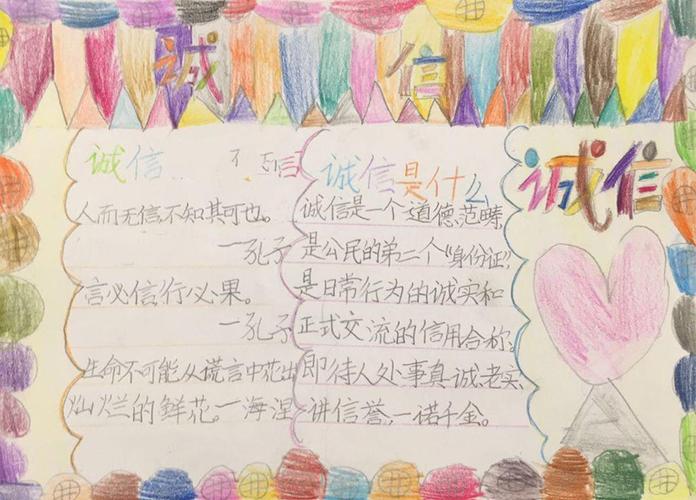 诚信
诚信
人而无信，不知其可也。
—孔子
言必信，行必果。
—孔子
生命不可能从谎言中花出
灿烂的鲜花。—海涅
诚信是什么
诚信是一个道德范畴，
是公民的第二个“身份证”，
是日常行为的诚实和
正式交流的信用合称。
即待人处事真诚、老实、
讲信誉，一诺千金。
诚信